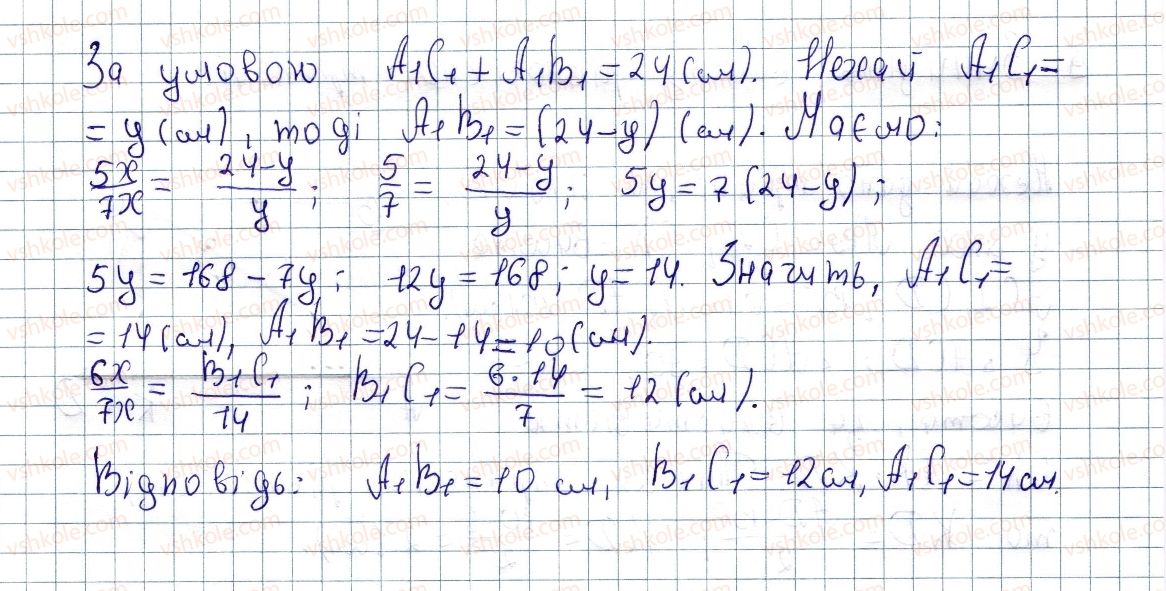 За умовою A₁C₁ + A₁B₁ = 24 (см). Нехай A₁C₁ =
= y (см), тоді A₁B₁ = (24 - y) (см). Маємо:
5x/7x = 24-y/y; 5/7 = 24-y/y; 5y = 7 (24-y);
5y = 168 - 7y; 12y = 168; y = 14. Значить, A₁C₁ =
= 14 (см), A₁B₁ = 24 - 14 = 10 (см).
6x/7x = B₁C₁/14; B₁C₁ = 6·14/7 = 12 (см).
Відповідь: A₁B₁ = 10 см, B₁C₁ = 12 см, A₁C₁ = 14 см.
vshkole.com